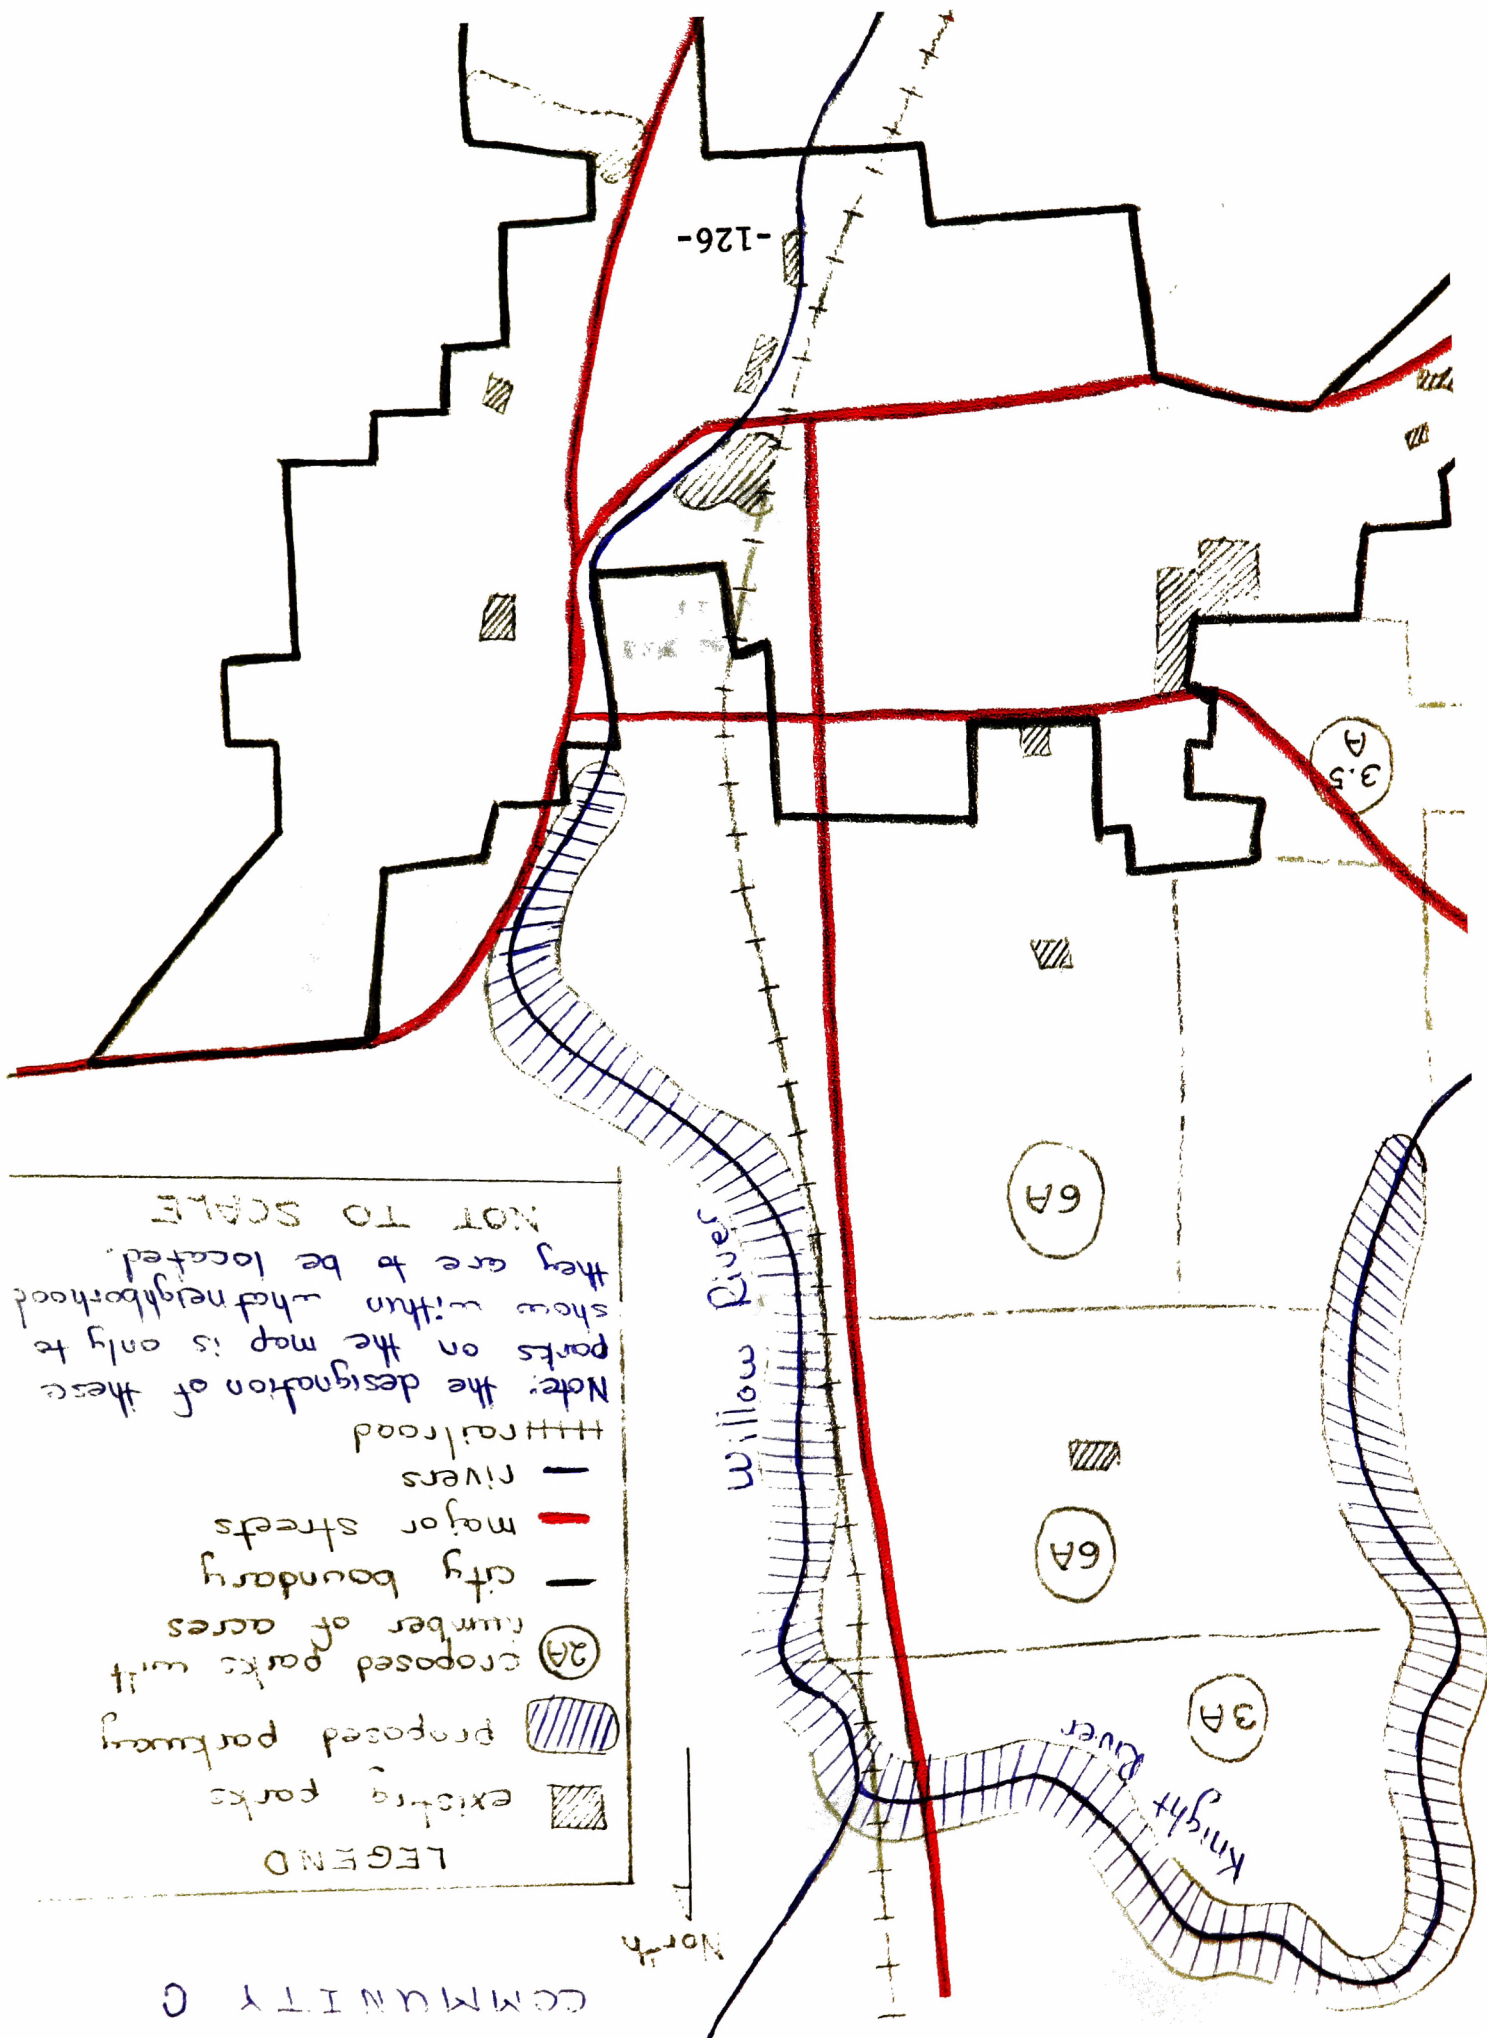 COMMUNITY C
North
LEGEND
existing parks
proposed parkway
2A
proposed parks wit
number of acres
city boundary
major streets
rivers
railroad
Note: the designation of these
parks on the map is only to
show within what neighborhood
they are to be located.
NOT TO SCALE
Knight River
3A
6A
Willow River
6A
3.5
A
-126-